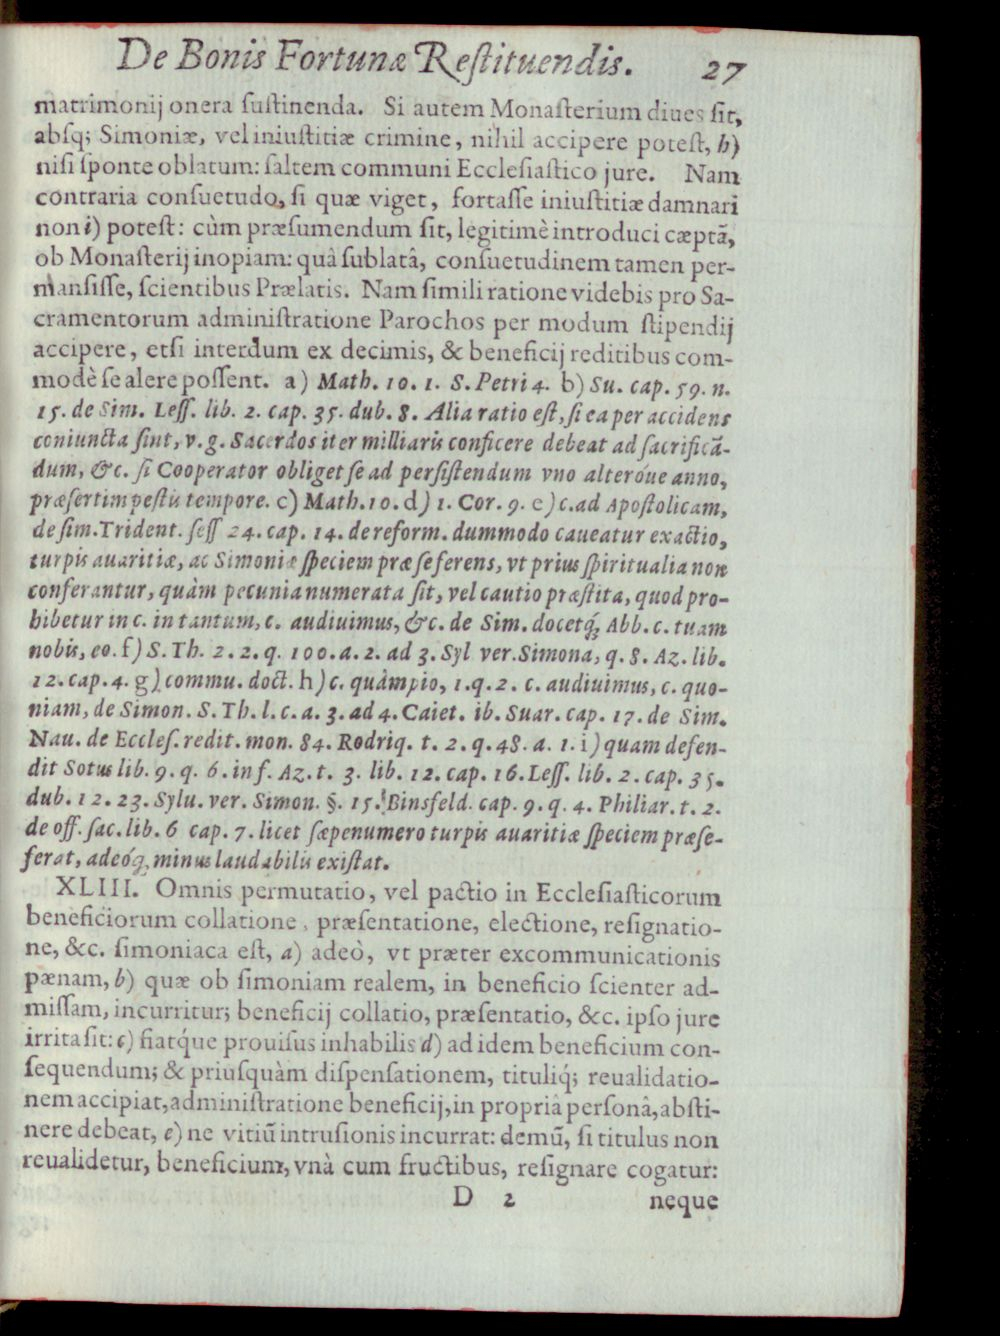 De Bonis Fortunæ Reſtituendis. 27
matrimonij onera ſuſtinenda. Si autem Monaſterium diues ſit,
abſq; Simoniæ, vel iniuſtitiæ crimine, nihil accipere poteſt, h)
niſi ſponte oblatum: ſaltem communi Eccleſiaſtico jure. Nam
contraria conſuetudo, ſi quæ viget, fortaſſe iniuſtitiæ damnari
non i) poteſt: cùm præſumendum ſit, legitimè introduci cæptã,
ob Monaſterij inopiam: quâ ſublatâ, conſuetudinem tamen per-
manſiſſe, ſcientibus Prælatis. Nam ſimili ratione videbis pro Sa-
cramentorum adminiſtratione Parochos per modum ſtipendij
accipere, etſi interdum ex decimis, & beneficij reditibus com-
modè ſe alere poſſent. a) Math. 10. 1. S. Petri 4. b) Su. cap. 59. n.
15. de Sim. Leſſ. lib. 2. cap. 35. dub. 8. Alia ratio eſt, ſi ea per accidens
coniuncta ſint, v. g. Sacerdos iter milliaris conficere debeat ad ſacrificã-
dum, &c. ſi Cooperator obliget ſe ad perſiſtendum vno alteróue anno,
præſertim peſtis tempore. c) Math. 10. d) 1. Cor. 9. e) c. ad Apoſtolicam,
de ſim. Trident. ſeſſ 24. cap. 14. de reform. dummodo caueatur exactio,
turpis auaritiæ, ac Simoniæ ſpeciem præ ſe ferens, vt prius ſpiritualia non
conferantur, quàm pecunia numerata ſit, vel cautio præſtita, quod pro-
hibetur in c. in tantum, c. audiuimus, &c. de Sim. docetq́; Abb. c. tuam
nobis, eo. f) S. Th. 2. 2. q. 100. a. 2. ad 3. Syl ver. Simona, q. 8. Az. lib.
12. cap. 4. g) commu. doct. h) c. quàm pio, 1. q. 2. c. audiuimus, c. quo-
niam, de Simon. S. Th. l. c. a. 3. ad 4. Caiet. ib. Suar. cap. 17. de Sim.
Nau. de Eccleſ. redit. mon. 84. Rodriq. t. 2. q. 48. a. 1. i) quam defen-
dit Sotus lib. 9. q. 6. in f. Az. t. 3. lib. 12. cap. 16. Leſſ. lib. 2. cap. 35.
dub. 12. 23. Sylu. ver. Simon. §. 15. Binsfeld. cap. 9. q. 4. Philiar. t. 2.
de off. ſac. lib. 6 cap. 7. licet ſæpenumero turpis auaritiæ ſpeciem præ ſe-
ferat, adeóq́; minus laudabilis exiſtat.
XLIII. Omnis permutatio, vel pactio in Eccleſiaſticorum
beneficiorum collatione, præſentatione, electione, reſignatio-
ne, &c. ſimoniaca eſt, a) adeò, vt præter excommunicationis
pænam, b) quæ ob ſimoniam realem, in beneficio ſcienter ad-
miſſam, incurritur; beneficij collatio, præſentatio, &c. ipſo jure
irrita ſit: c) fiatq́ue prouiſus inhabilis d) ad idem beneficium con-
ſequendum; & priuſquàm diſpenſationem, tituliq́; reualidatio-
nem accipiat, adminiſtratione beneficij, in propriâ perſonâ, abſti-
nere debeat, e) ne vitiũ intruſionis incurrat: demũ, ſi titulus non
reualidetur, beneficium, vnà cum fructibus, reſignare cogatur:
D 2 neque